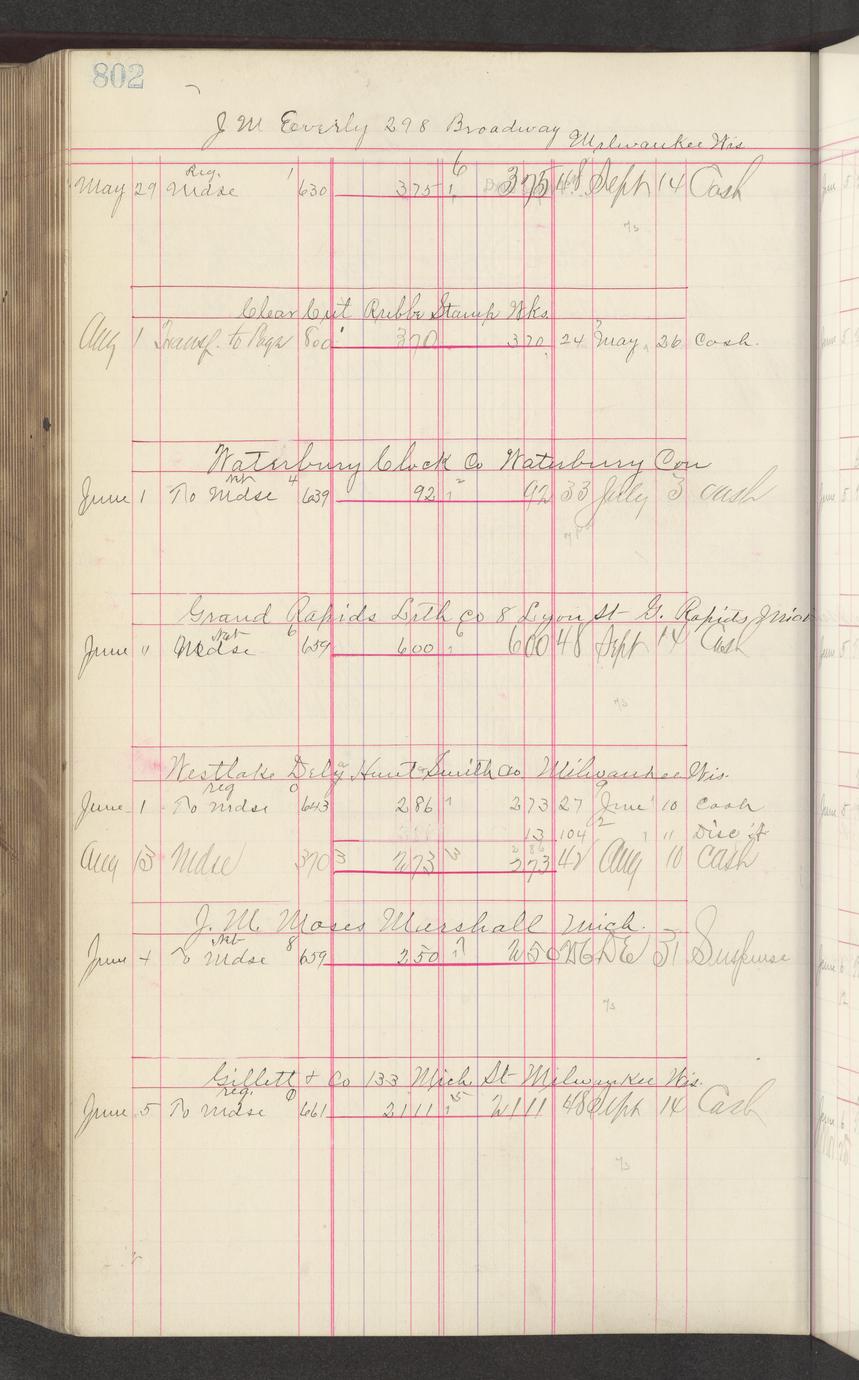 802
J M Everly 298 Broadway Milwaukee Wis
Reg.
May 29 Mdse 1 630 375 1 6 375 48 Sept 14 Cash
7/3
Clear Cut Rubbe Stamp Wks
Aug 1 Transf. to Page 800 370 370 24 May 26 Cash.
Waterbury Clock Co Waterbury Con
Net
June 1 To Mdse 4 639 92 1 2 92 33 July 3 Cash
Grand Rapids Lith Co 8 Lyon St G. Rapids Mich
Net
June " Mdse 6 659 600 1 6 600 48 Sept 14 Cash
7/3
Westlake Dely Hunt & Smith Co Milwaukee Wis.
reg
June 1 To Mdse 0 643 286 1 273 27 June 10 Cash
13 104 " " Disc't
286
Aug 13 Mdse 370 3 273 13 273 42 Aug 10 Cash
J. M. Moses Marshall Mich.
Net
June 4 To Mdse 8 659 250 1 7 250 26 DE 31 Suspense
7/3
Gillett & Co 133 Mich St Milwaukee Wis.
reg.
June 5 To Mdse 0 661 2111 1 5 2111 48 Sept 14 Cash
7/3